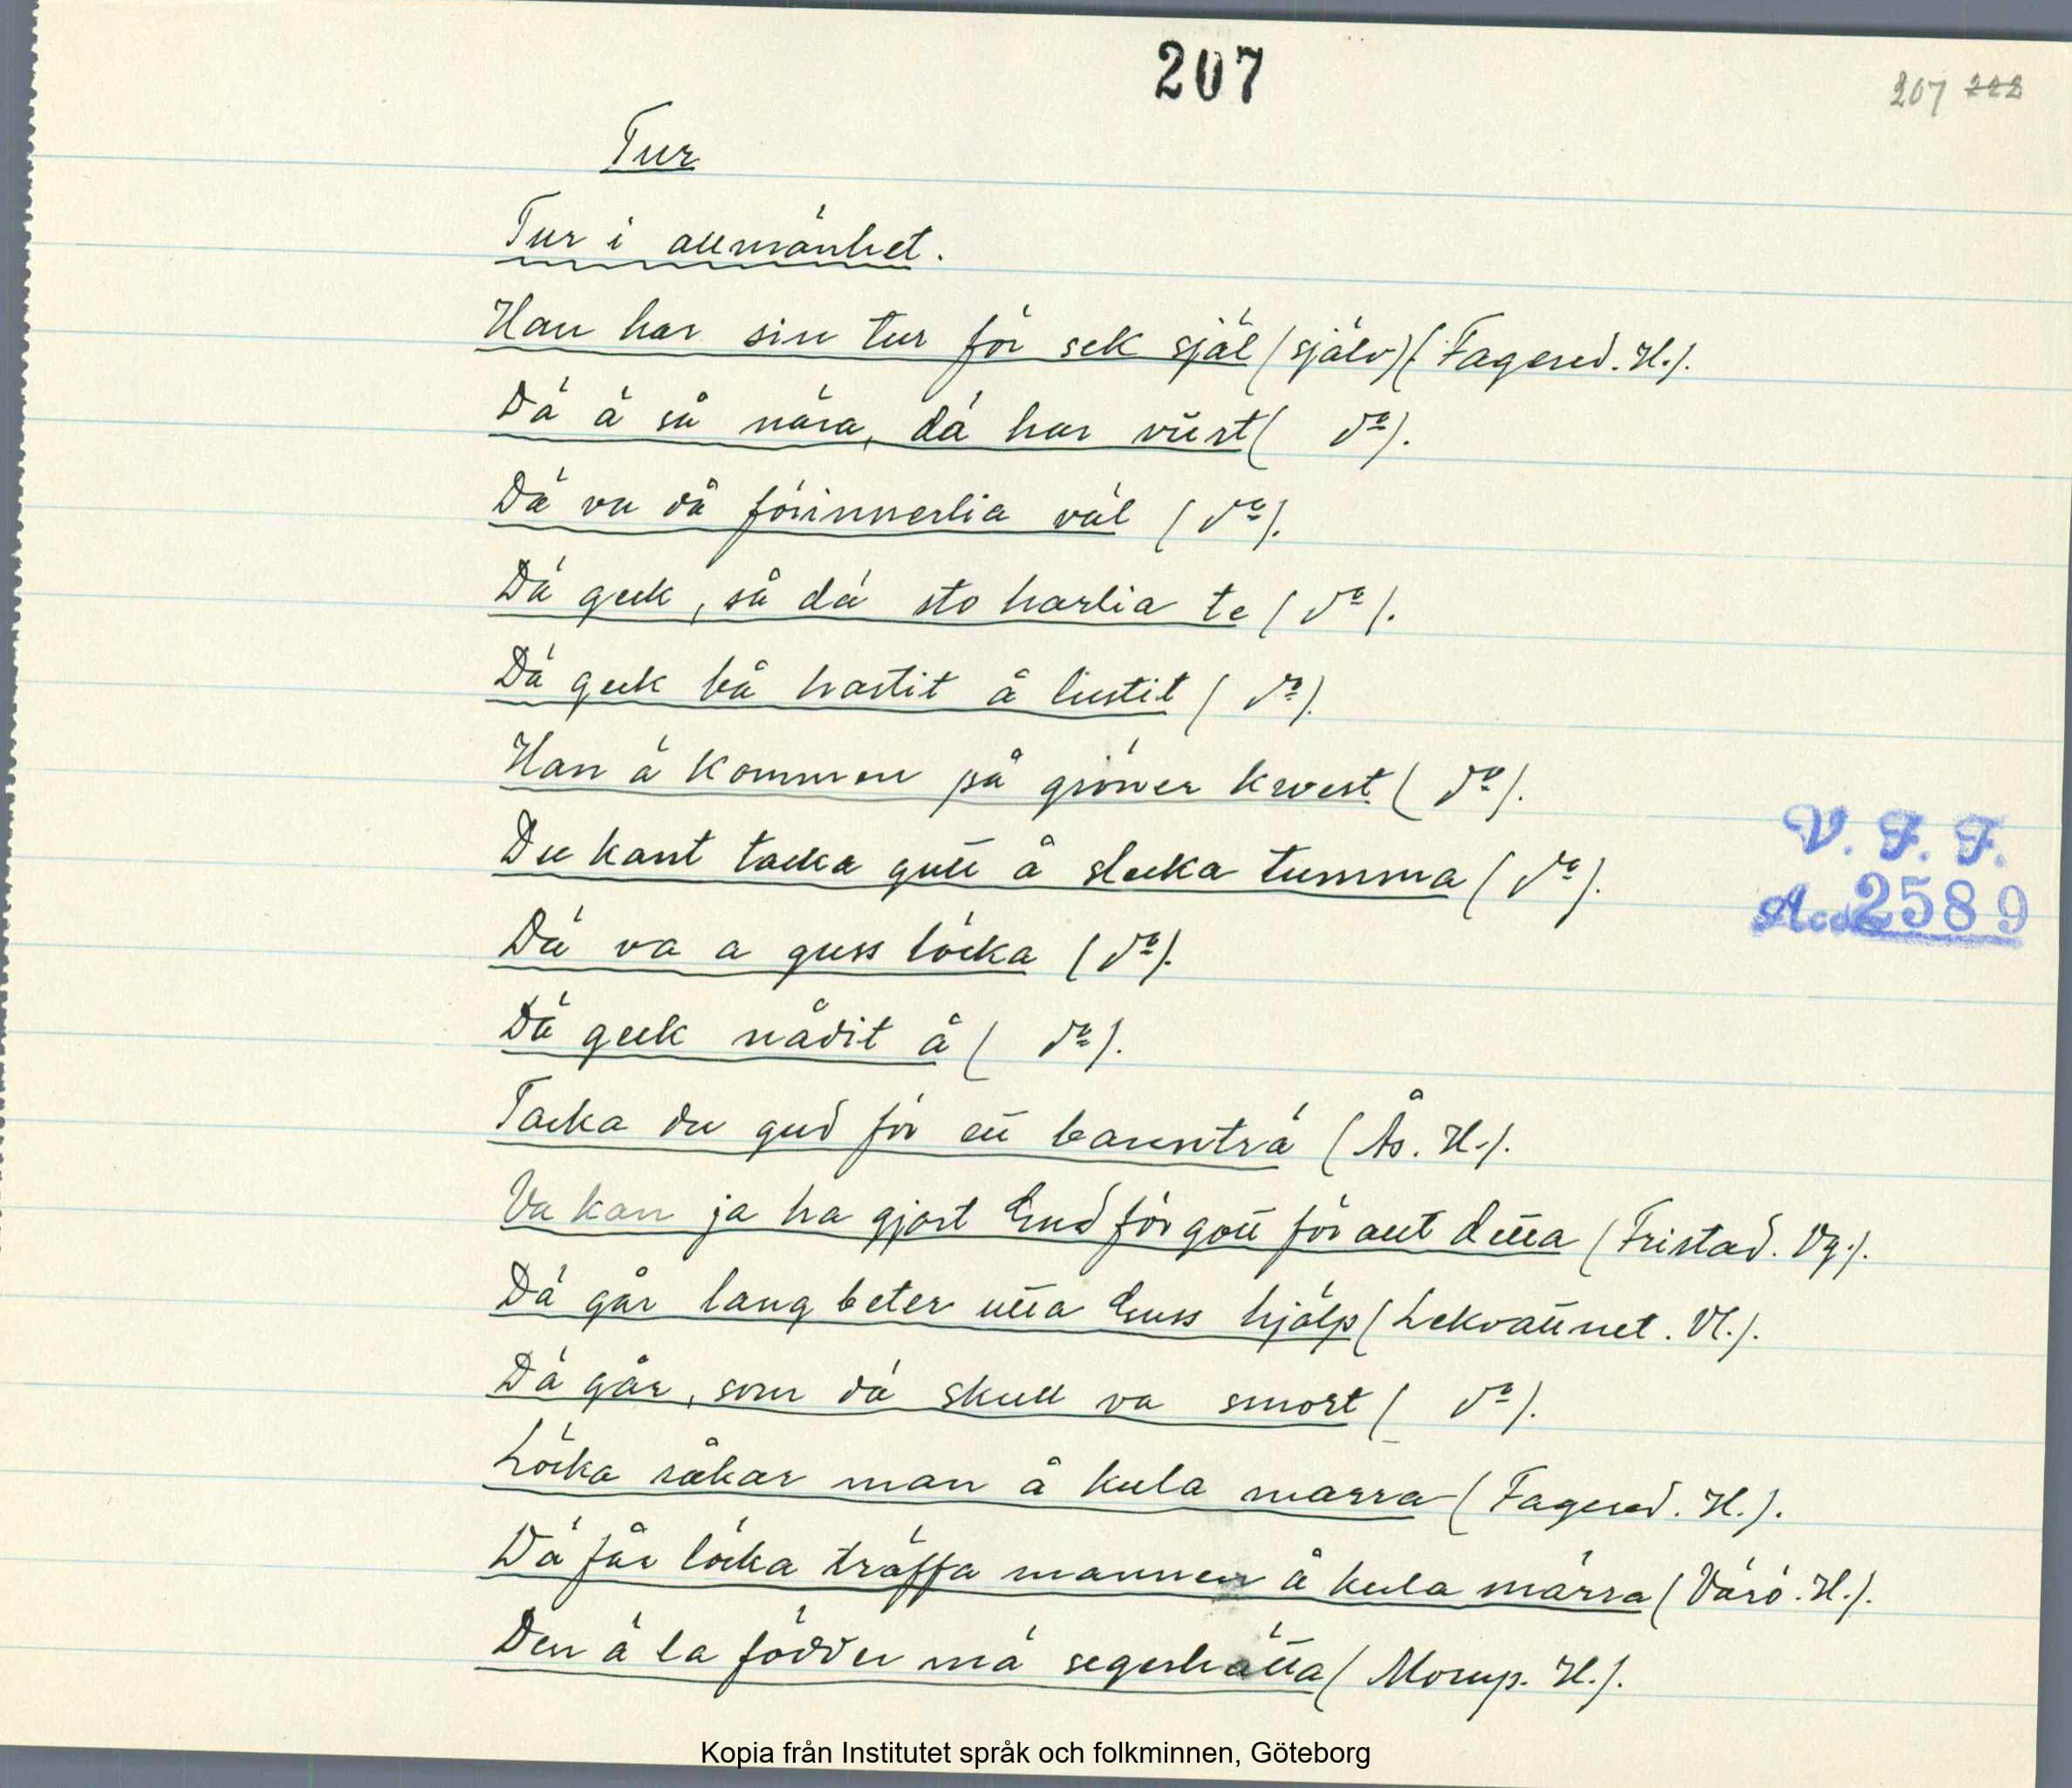 207
207 222
Tur
Tur i allmänhet.
Han har sin tur för sek själ (själv) (Fagered. H.).
Dä ä så nära, dä har vüst (do).
Dä va då förinnerlia väl (do).
Dä geck, så dä sto harlia te (do).
Dä geck bå hastit å lustit (do).
Han ä kommen på gröner kvest (do).
Du kant tacka gutt å slecka tumma (do).
Dä va a guss löcka (do).
Dä geck nådit å (do).
Tacka du gud för ett baunträ (Ås. H.).
Va kan ja ha gjort Gud för gott för aut detta (Fristad. Vg.).
Dä går lang beter utta Guss hjälp (Lekvattnet. Vl.).
Dä går, som dä skull va smort (do).
Löcka råkar man å kula marra (Fagered. H.).
Dä får löcka träffa mannen å kula märra (Värö. H.).
Den ä la födder mä segerhätta (Morup. H.).
V. F. F.
Acc 2589
Kopia från Institutet språk och folkminnen, Göteborg